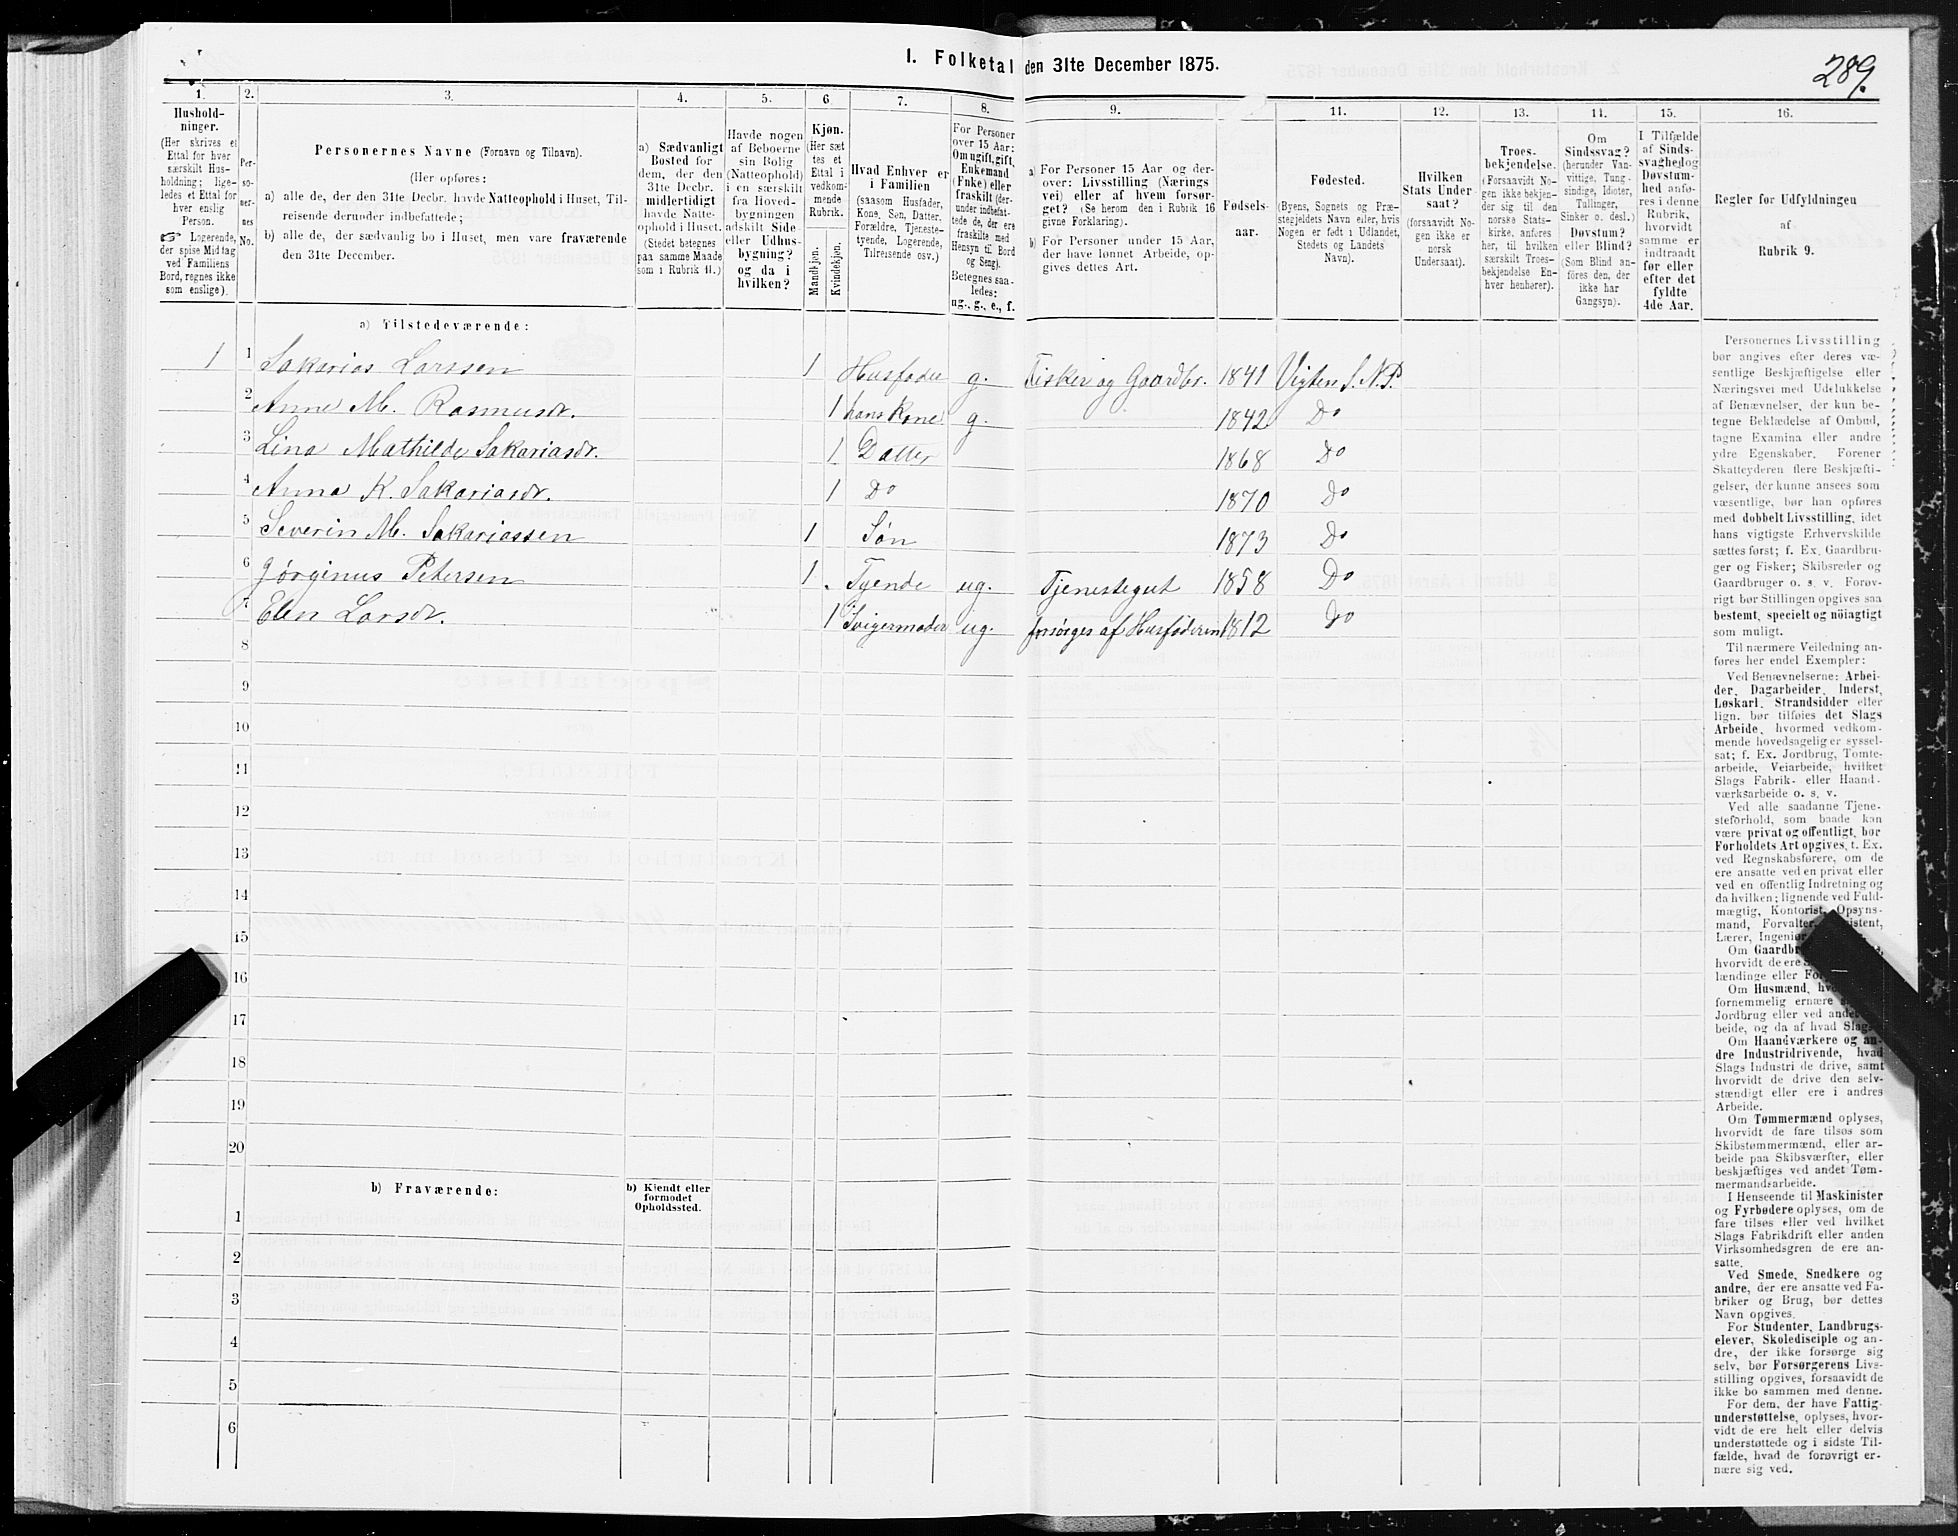 1. Folketal den 31te December 1875.
289.
1. 2. 3. 4. 5. 6. 7. 8. 9. 11. 12. 13. 14. 15. 16.
Hushold-
ninger.
(Her skrives et
Ettal for hver
særskilt Hus-
holdning; lige-
ledes et Ettal for
hver enslig
Person.
☞ Logerende,
der spise Middag
ved Familiens
Bord, regnes ikke
som enslige).
Per-
so-
ner-
nes
No.
Personernes Navne (Fornavn og Tilnavn).
(Her opføres:
a) alle de, der den 31te Decbr. havde Natteophold i Huset, Til-
reisende derunder indbefattede;
b) alle de, der sædvanlig bo i Huset, men vare fraværende
den 31te December.
a) Sædvanligt
Bosted for
dem, der den
31te Decbr.
midlertidigt
havde Natte-
ophold i Huset.
(Stedet betegnes
paa samme Maade
som i Rubrik 11.)
Havde nogen
af Beboerne
sin Bolig
(Natteophold)
i en særskilt
fra Hoved-
bygningen
adskilt Side-
eller Udhus-
bygning?
og da i
hvilken?
Kjøn.
(Her sæt
tes et
Ettal i
vedkom-
mende
Rubrik.
Mandkjøn.
Kvindekjøn.
Hvad Enhver er
i Familien
(saasom Husfader,
Kone, Søn, Datter,
Forældre, Tjeneste-
tyende, Logerende,
Tilreisende osv.)
For Personer
over 15 Aar:
Om ugift, gift,
Enkemand
(Enke) eller
fraskilt (der-
under indbefat-
tede de, der ere
fraskilte med
Hensyn til Bord
og Seng).
Betegnes saa-
ledes:
ug., g., e., f.
a) For Personer 15 Aar og der-
over: Livsstilling (Nærings
vei) eller af hvem forsør-
get? (Se herom den i Rubrik 16
givne Forklaring).
b) For Personer under 15 Aar,
der have lønnet Arbeide, op-
gives dettes Art.
Fødsels-
aar.
Fødested.
(Byens, Sognets og Præ-
stegjeldets Navn eller, hvis
Nogen er født i Udlandet,
Stedets og Landets
Navn).
Hvilken
Stats Under-
saat?
(forsaavidt No-
gen ikke er
norsk
Undersaat).
Troes-
bekjendelse.
(Forsaavidt No-
gen ikke bekjen-
der sig til den
norske Stats-
kirke, anføres
her, til hvilken
særskilt Troes-
bekjendelse En-
hver henhører).
Om
Sindssvag?
(herunder Van-
vittige, Tung-
sindige, Idioter,
Sinker o. desl.)
Døvstum?
eller Blind?
(Som Blind an-
føres den, der
ikke har
Gangsyn).
I Tilfælde
af Sinds-
svaghed og
Døvstum-
hed anfø-
res i denne
Rubrik,
hvorvidt
samme er
indtraadt
før eller
efter det
fyldte
4de Aar.
Regler for Udfyldningen
af
Rubrik 9.
a) Tilstedeværende:
1 1 Sakarias Larssen 1 Husfader g. Fisker og Gaardbr. 1841 Vigten S. N.P.
2 Anne M. Rasmusdr. 1 hans Kone g. 1842 Do
3 Lina Mathilde Sakariasdr. 1 Datter 1868 Do
4 Anna K. Sakariasdr. 1 Do 1870 Do
5 Severin M. Sakariassen 1 Søn 1873 Do
6 Jørginus Petersen 1 Tyende ug. Tjenestegut 1858 Do
7 Elen Larsdr. 1 Svigermoder ug. forsørges af Husfaderen 1812 Do
8
9
10
11
12
13
14
15
16
17
18
19
20
b) Fraværende:
b) Kjendt eller
formodet
Opholdssted.
1
2
3
4
5
6
Personernes Livsstilling
bør angives efter deres væ-
sentlige Beskjæftigelse eller
Næringsvei med Udelukkelse
af Benævnelser, der kun be-
tegne Beklædelse af Ombud,
tagne Examina eller andre
ydre Egenskaber. Forener
Skatteyderen flere Beskjæfti-
gelser, der kunne ansees som
væsentlige, bør han opføres
med dobbelt Livsstilling, idet
hans vigtigste Erhvervskilde
sættes først; f. Ex. Gaardbru-
ger og Fisker; Skibsreder og
Gaardbruger o. s. v. Forøv-
rigt bør Stillingen opgives saa
bestemt, specielt og nøiagtigt
som muligt.
Til nærmere Veiledning an-
føres her endel Exempler:
Ved Benævnelserne: Arbei-
der, Dagarbeider, Inderst,
Løskarl, Strandsidder eller
lign. bør tilføies det Slags
Arbeide, hvormed vedkom-
mende hovedsagelig er syssel-
sat; f. Ex. Jordbrug, Tomte-
arbeide, Veiarbeide, hvilket
Slags Fabrik- eller Haand-
værksarbeide o. s. v.
Ved alle saadanne Tjene-
steforhold, som baade kan
være privat og offentligt, bør
Forholdets Art opgives, t. Ex.
ved Regnskabsførere, om de
ere ansatte ved en privat eller
ved en offentlig Indretning og
da hvilken; lignende ved Fuld-
mægtig, Kontorist, Opsyns-
mand, Forvalter,
Lærer,
Om
hvorvidt de ere
lændinge eller
Om Husmænd,
fornemmelig ernære
Jordbrug eller ved
beide, og da af hvad Slags
Om Haandværkere og an-
dre Industridrivende, hvad
Slags Industri de drive, samt
hvorvidt de drive den selv-
stændigt eller ere i andres
Arbeide.
Om Tømmermænd oplyses,
hvorvidt de fare tilsøs som
Skibstømmermænd, eller ar-
beide paa Skibsværfter, eller
beskjæftiges ved andet Tøm-
mermandsarbeide.
I Henseende til Maskinister
og Fyrbødere oplyses, om de
fare tilsøs eller ved hvilket
Slags Fabrikdrift eller anden
Virksomhedsgren de ere an-
satte.
Ved Smede, Snedkere og
andre, der ere ansatte ved Fa-
briker og Brug, bør dettes
Navn opgives.
For Studenter, Landbrugs-
elever, Skoledisciple og an-
dre, der ikke forsørge sig
selv, bør Forsørgerens Livs-
stilling opgives, forsaavidt de
ikke bo sammen med denne.
For dem, der have Fattig-
understøttelse, oplyses, hvor-
vidt de ere helt eller delvis
understøttede og i sidste Til-
fælde, hvad de forøvrigt er-
nære sig ved.